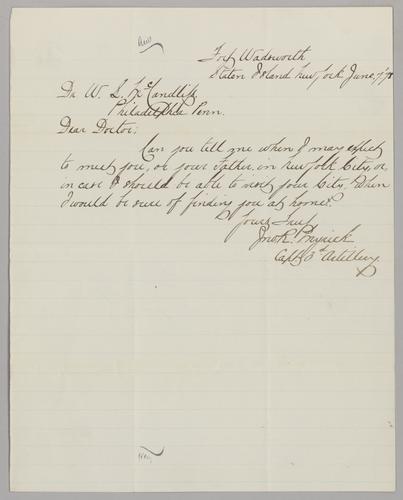 Fort Wadsworth
Staten Island New York June 7/78
Dr. W. L. McCandlish
Philadelphia Penn.
Dear Doctor:
Can you tell me when I may expect
to meet you, or your Father, in New York City, or,
in case I should be able to visit your City, when
I would be sure of finding you at home?
Yours Truly
Jno R. Myrick
Capt 3d Artillery